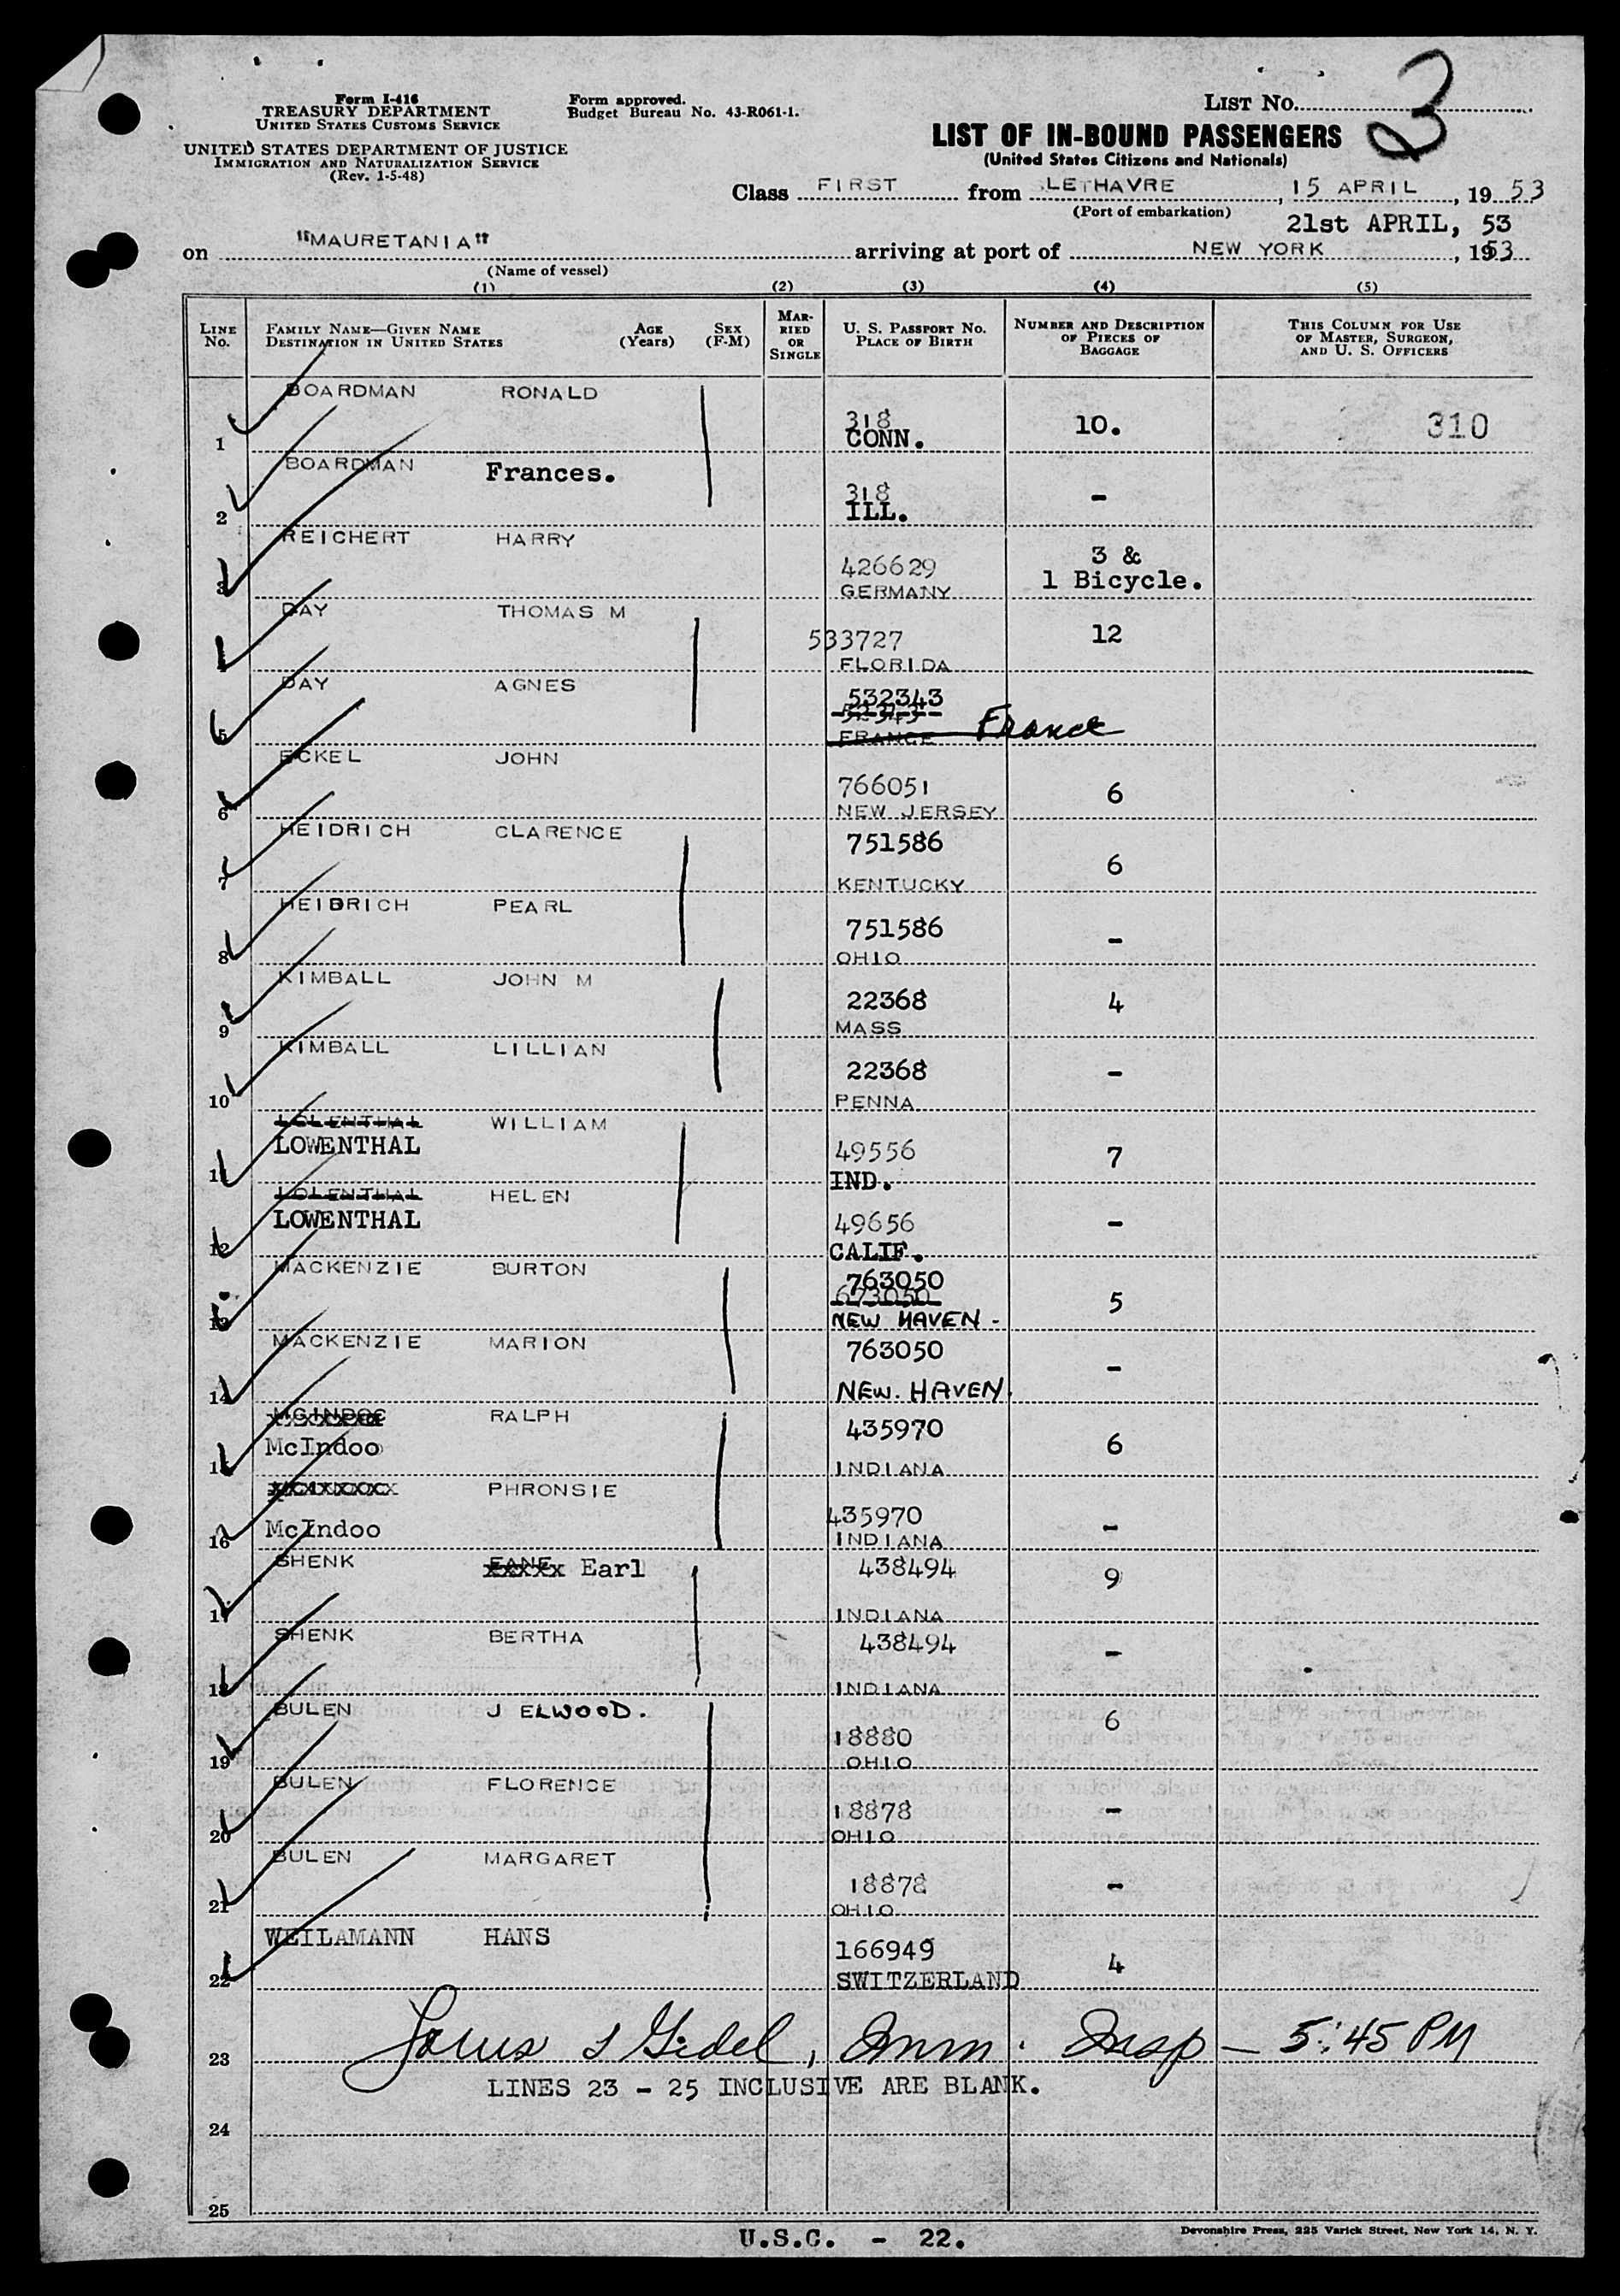 3
Form I-416
TREASURY DEPARTMENT
UNITED STATES CUSTOMS SERVICE
UNITED STATES DEPARTMENT OF JUSTICE
IMMIGRATION AND NATURALIZATION SERVICE
(Rev. 1-5-48)
Form approved.
Budget Bureau No. 43-R061-1.
LIST NO.
LIST OF IN-BOUND PASSENGERS
(United States Citizens and Nationals)
Class FIRST from LETHAVRE, 15 APRIL, 19 53
(Port of embarkation)
21st APRIL, 53
on "MAURETANIA" arriving at port of NEW YORK, 1953
(Name of vessel)
(1) (2) (3) (4) (5)
LINE No. FAMILY NAME—GIVEN NAME DESTINATION IN UNITED STATES AGE (Years) SEX (F-M) MARRIED OR SINGLE U. S. PASSPORT NO. PLACE OF BIRTH NUMBER AND DESCRIPTION OF PIECES OF BAGGAGE THIS COLUMN FOR USE OF MASTER, SURGEON, AND U. S. OFFICERS
1 BOARDMAN RONALD 318 CONN. 10. 310
2 BOARDMAN Frances. 318 ILL. -
3 REICHERT HARRY 426629 GERMANY 3 & 1 Bicycle.
DAY THOMAS M 533727 FLORIDA 12
5 DAY AGNES 532343 FRANCE France
6 ECKEL JOHN 766051 NEW JERSEY 6
7 HEIDRICH CLARENCE 751586 KENTUCKY 6
8 HEIDRICH PEARL 751586 OHIO -
9 KIMBALL JOHN M 22368 MASS 4
10 KIMBALL LILLIAN 22368 PENNA -
11 LOLENTHAL WILLIAM LOWENTHAL 49556 IND. 7
12 LOLENTHAL HELEN LOWENTHAL 49656 CALIF. -
13 MACKENZIE BURTON 763050 673050 NEW HAVEN - 5
14 MACKENZIE MARION 763050 NEW. HAVEN. -
15 RALPH McIndoo 435970 INDIANA 6
16 PHRONSIE McIndoo 435970 INDIANA -
17 SHENK Earl 438494 INDIANA 9
18 SHENK BERTHA 438494 INDIANA -
19 BULEN J ELWOOD. 18880 OHIO 6
20 BULEN FLORENCE 18878 OHIO -
21 BULEN MARGARET 18878 OHIO -
22 WEILAMANN HANS 166949 SWITZERLAND 4
23 Gidel, Imm. Insp — 5:45 PM
LINES 23 - 25 INCLUSIVE ARE BLANK.
24
25
U.S.C. - 22.
Devonshire Press, 225 Varick Street, New York 14, N. Y.